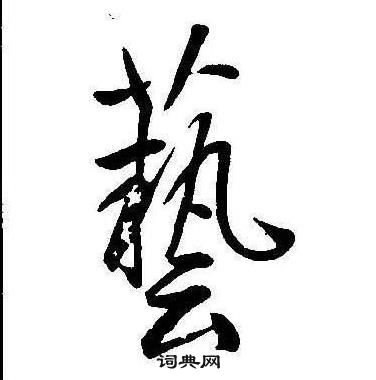 藝
词典网